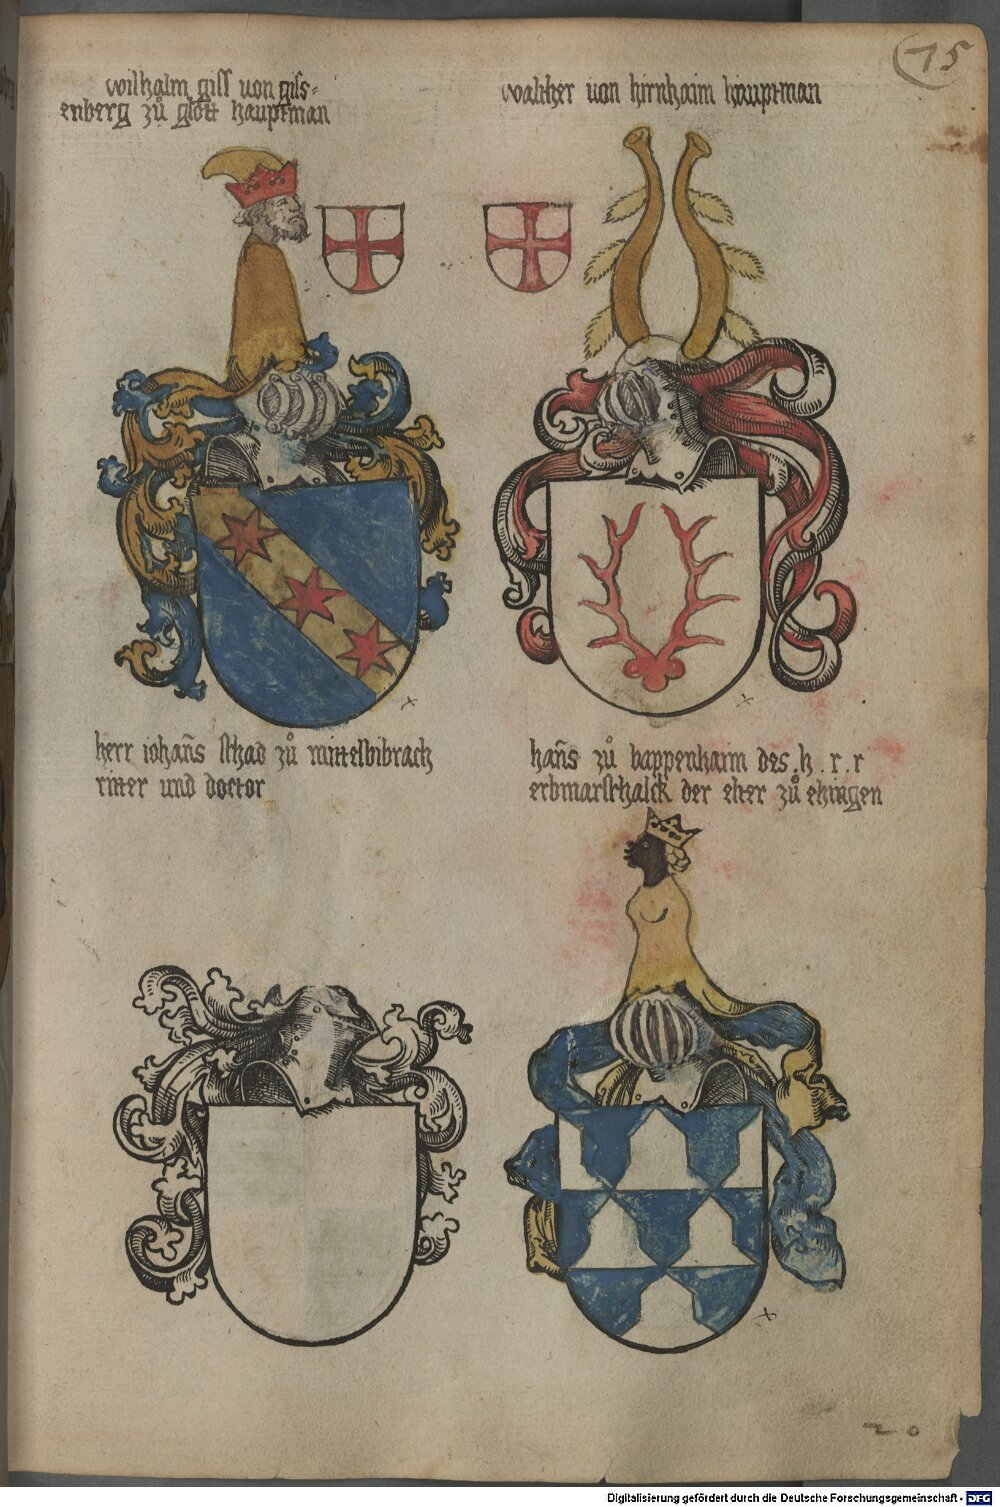 15
wilhalm giss von giss-
enberg zů glött hauptman
walther von hirnhaim hauptman
herr iohan̄s schad zů mittelbibrach
ritter und doctor
han̄s zů bappenhaim des . h . r . r
erbmarschalck der elter zů
Digitalisierung gefördert durch die Deutsche Forschungsgemeinschaft - DFG